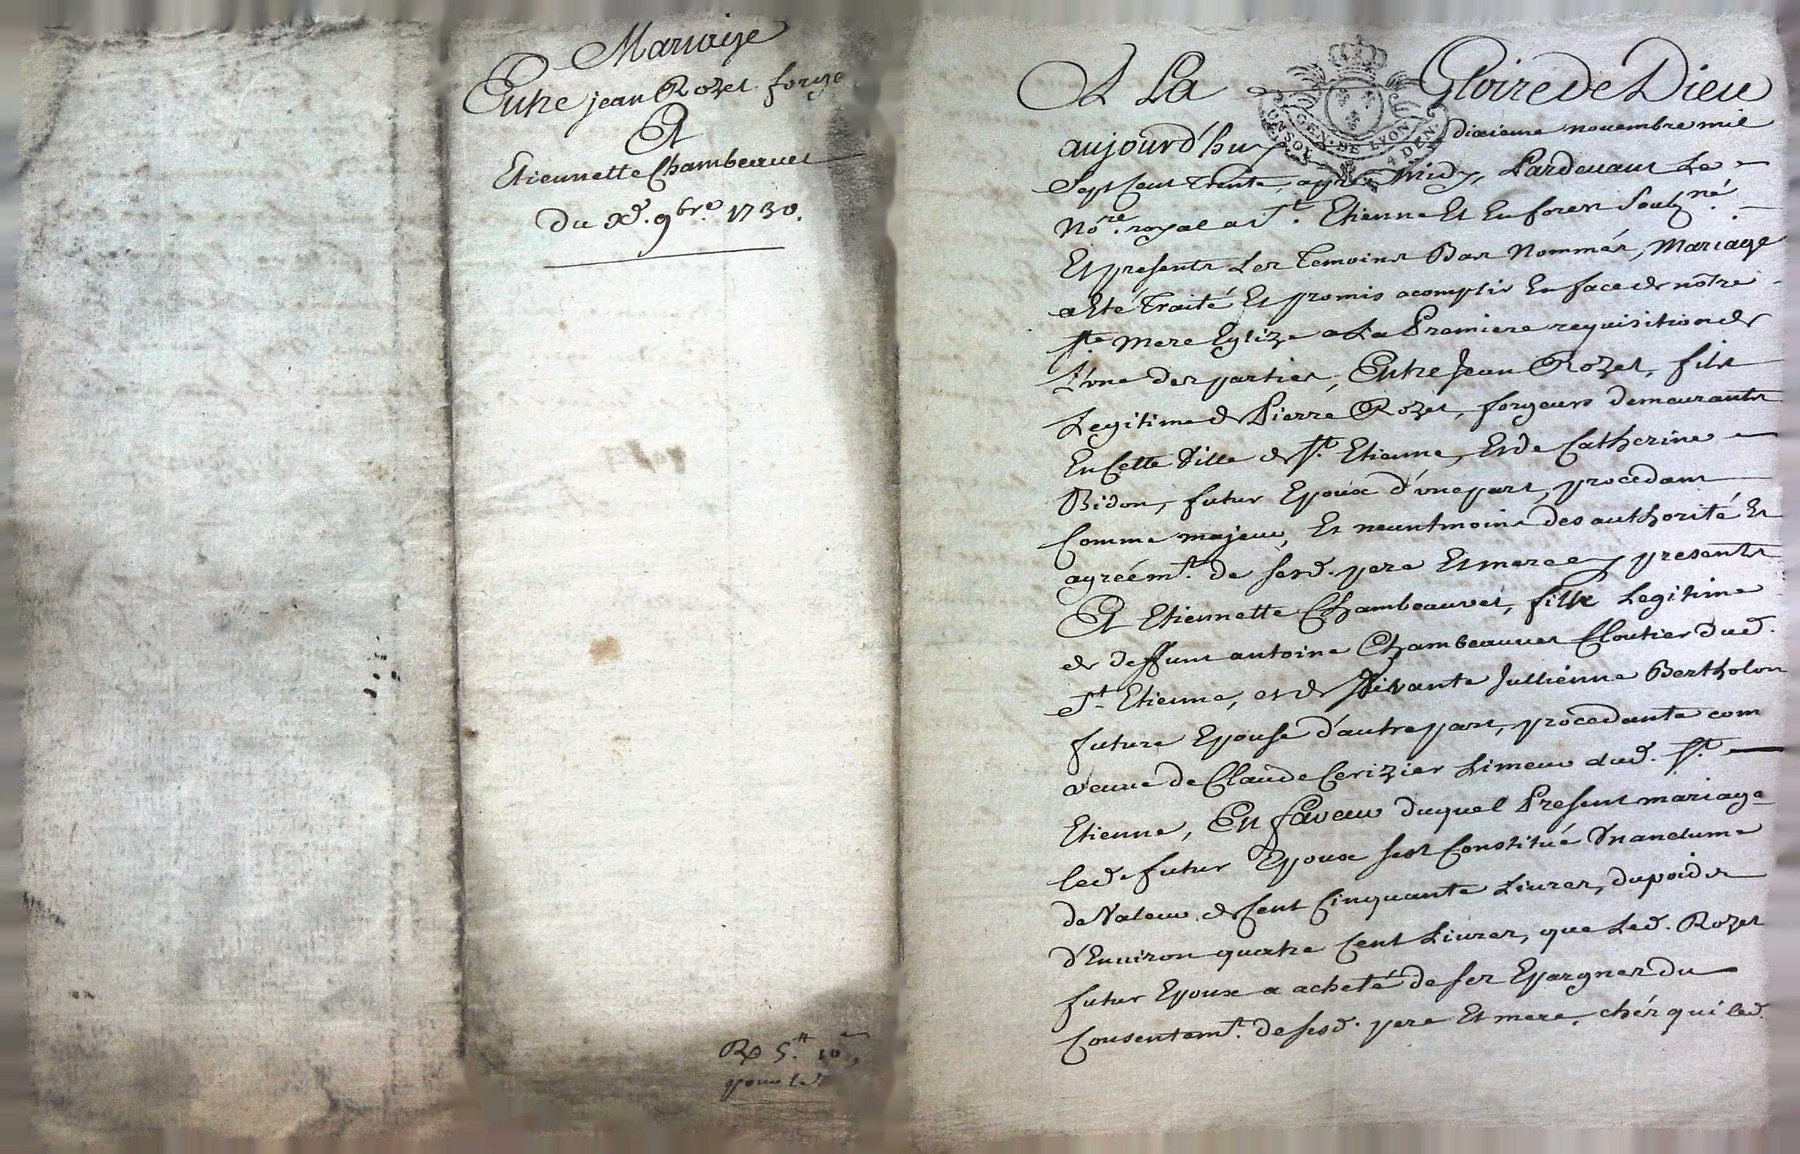 Mariage
Entre jean Rozet forge
Et
Etiennette Chambeauvet
Du xe. 9bre. 1730.
Rp 5tt 10s
pour led
A La Gloire de Dieu
GEN. DE LYON
4 DEN.
aujourd'huy dixieme novembre mil
Sept Cent trente, apres Midy, Pardevant Le
Nore. royal a St. Etienne Et En forest Soubzné.
Et presents Les temoins Bas Nommés, Mariage
a Eté Traité Et promis acomplir En face de nôtre
Ste mere Eglize a La Premiere requisition de
L'une des parties, Entre Jean Rozet, fils
Legitime de Pierre Rozet, forgeurs demeurants
En Cette Ville de St. Etienne, Et de Catherine
Bidon, futur Epoux d'une part, procedant
Comme majeur, Et neantmoins des authorité Et
agréemt. de sesd. pere Et mere cy presents
Et Etiennette Chambeauvet, fille Legitime
de deffunt antoine Chambeauvet Cloutier dud.
St. Etienne, et de Vivante Jullienne Bertholon
future Epouse d'autre part, procedante com
veuve de Claude Cerizier Limeur dud. St.
Etienne, En faveur duquel Present mariage
led. futur Epoux sest Constitué Une anclume
de Valeur de Cent Cinquante Livres, du poid de
d'Environ quatre Cent Livres, que Led. Rozet
futur Epoux a acheté de ses Epargnes du
Consentemt. de sesd. pere Et mere, chés qui led.